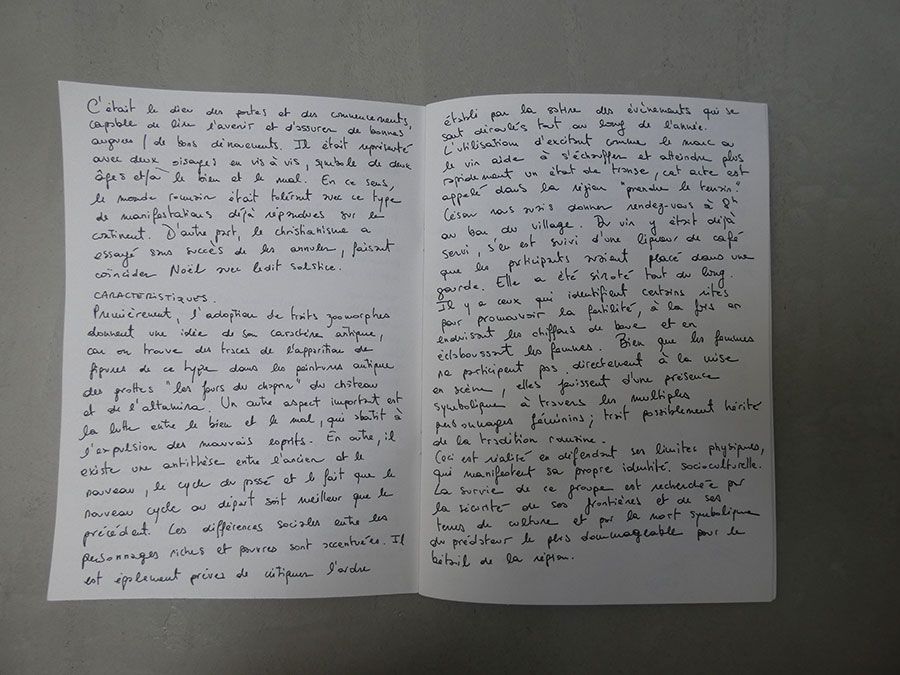 C'était le dieu des portes et des commencements,
capable de lire l'avenir et d'assurer de bonnes
augures / de bons dénouements. Il était représenté
avec deux visages en vis à vis, symbole de deux
âges et/à le bien et le mal. En ce sens,
le monde romain était tolérant avec ce type
de manifestations déjà répandues sur le
continent. D'autre part, le christianisme a
essayé sans succès de les annuler, faisant
coïncider Noël avec ledit solstice.
CARACTERISTIQUES.
Premièrement, l'adoption de traits zoomorphes
donnent une idée de son caractère antique,
car on trouve des traces de l'apparition de
figures de ce type dans les peintures antique
des grottes "les fours du chapron" du château
et de l'altamira. Un autre aspect important est
la lutte entre le bien et le mal, qui abatit à
l'expulsion des mauvais esprits. En outre, il
existe une antithèse entre l'ancien et le
nouveau, le cycle du passé et le fait que le
nouveau cycle au départ soit meilleur que le
précédent. Les différences sociales entre les
personnages riches et pauvres sont accentuées. Il
est également prévu de critiquer l'ordre
établi par la satire des évènements qui se
sont déroulés tout au long de l'année.
L'utilisation d'excitant comme le marc ou
le vin aide à s'échauffer et atteindre plus
rapidement un état de transe, cet acte est
appelé dans la région "prendre le
César nous avais donner rendez-vous à 8h
au bar du village. Du vin y était déjà
servi, s'en est suivi d'une liqueur de café
que les participants avaient placé dans une
gourde. Elle a été siroté tout du long.
Il y a ceux qui identifient certains rites
pour promouvoir la fertilité, à la fois en
enduisant les chiffons de boue et en
éclaboussant les femmes. Bien que les femmes
ne participent pas directement à la mise
en scène, elles jouissent d'une présence
symbolique à travers les multiples
personnages féminins; trait possiblement hérité
de la tradition romaine.
Ceci est réalité en défendant ses limites physiques,
qui manifestent sa propre identité socioculturelle.
La survie de ce groupe est recherchée par
la sécurité de ses frontières et de ses
terres de culture et par la mort symbolique
du prédateur le plus dommageable pour le
bétail de la région.